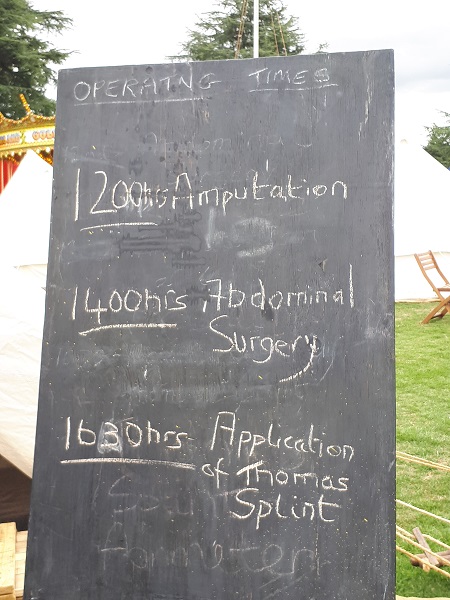 OPERATNG TIMES
1200hrs Amputation
1400hrs Abdominal
Surgery
1630hrs Application
of Thomas
Splint